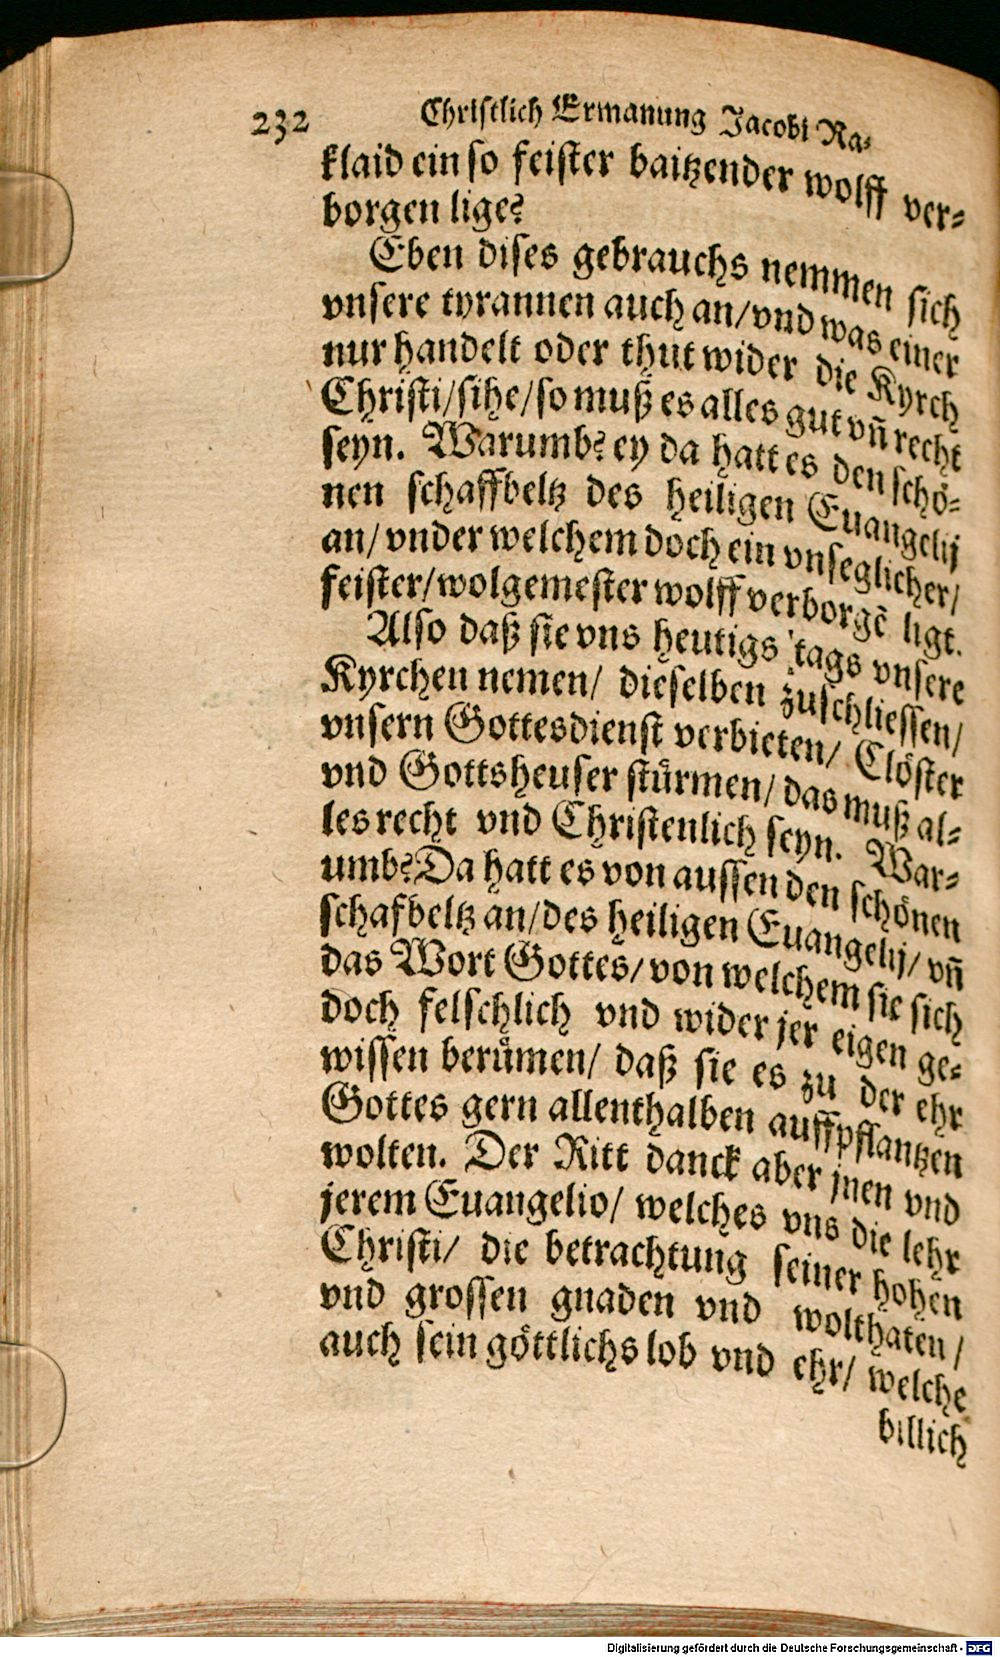 232 Christlich Ermanung Jacobi Ra⸗
klaid ein so feister baitzender wolff ver⸗
borgen lige?
Eben dises gebrauchs nemmen sich
vnsere tyrannen auch an/vnd was einer
nur handelt oder thut wider die Kyrch
Christi/sihe/so muß es alles gut vñ recht
seyn. Warumb? ey da hatt es den schö⸗
nen schaffbeltz des heiligen Euangelij
an/vnder welchem doch ein vnseglicher/
feister/wolgemester wolff verborgẽ ligt.
Also daß sie vns heutigs tags vnsere
Kyrchen nemen/ dieselben zuschliessen/
vnsern Gottesdienst verbieten/ Clöster
vnd Gottsheuser stürmen/das muß al⸗
les recht vnd Christenlich seyn. War⸗
umb? Da hatt es von aussen den schönen
schafbeltz an/des heiligen Euangelij/ vñ
das Wort Gottes/von welchem sie sich
doch felschlich vnd wider jer eigen ge⸗
wissen berümen/ daß sie es zu der ehr
Gottes gern allenthalben auffpflantzen
wolten. Der Ritt danck aber jnen vnd
jerem Euangelio/ welches vns die lehr
Christi/ die betrachtung seiner hohen
vnd grossen gnaden vnd wolthaten/
auch sein göttlichs lob vnd ehr/ welche
billich
Digitalisierung gefördert durch die Deutsche Forschungsgemeinschaft - DFG